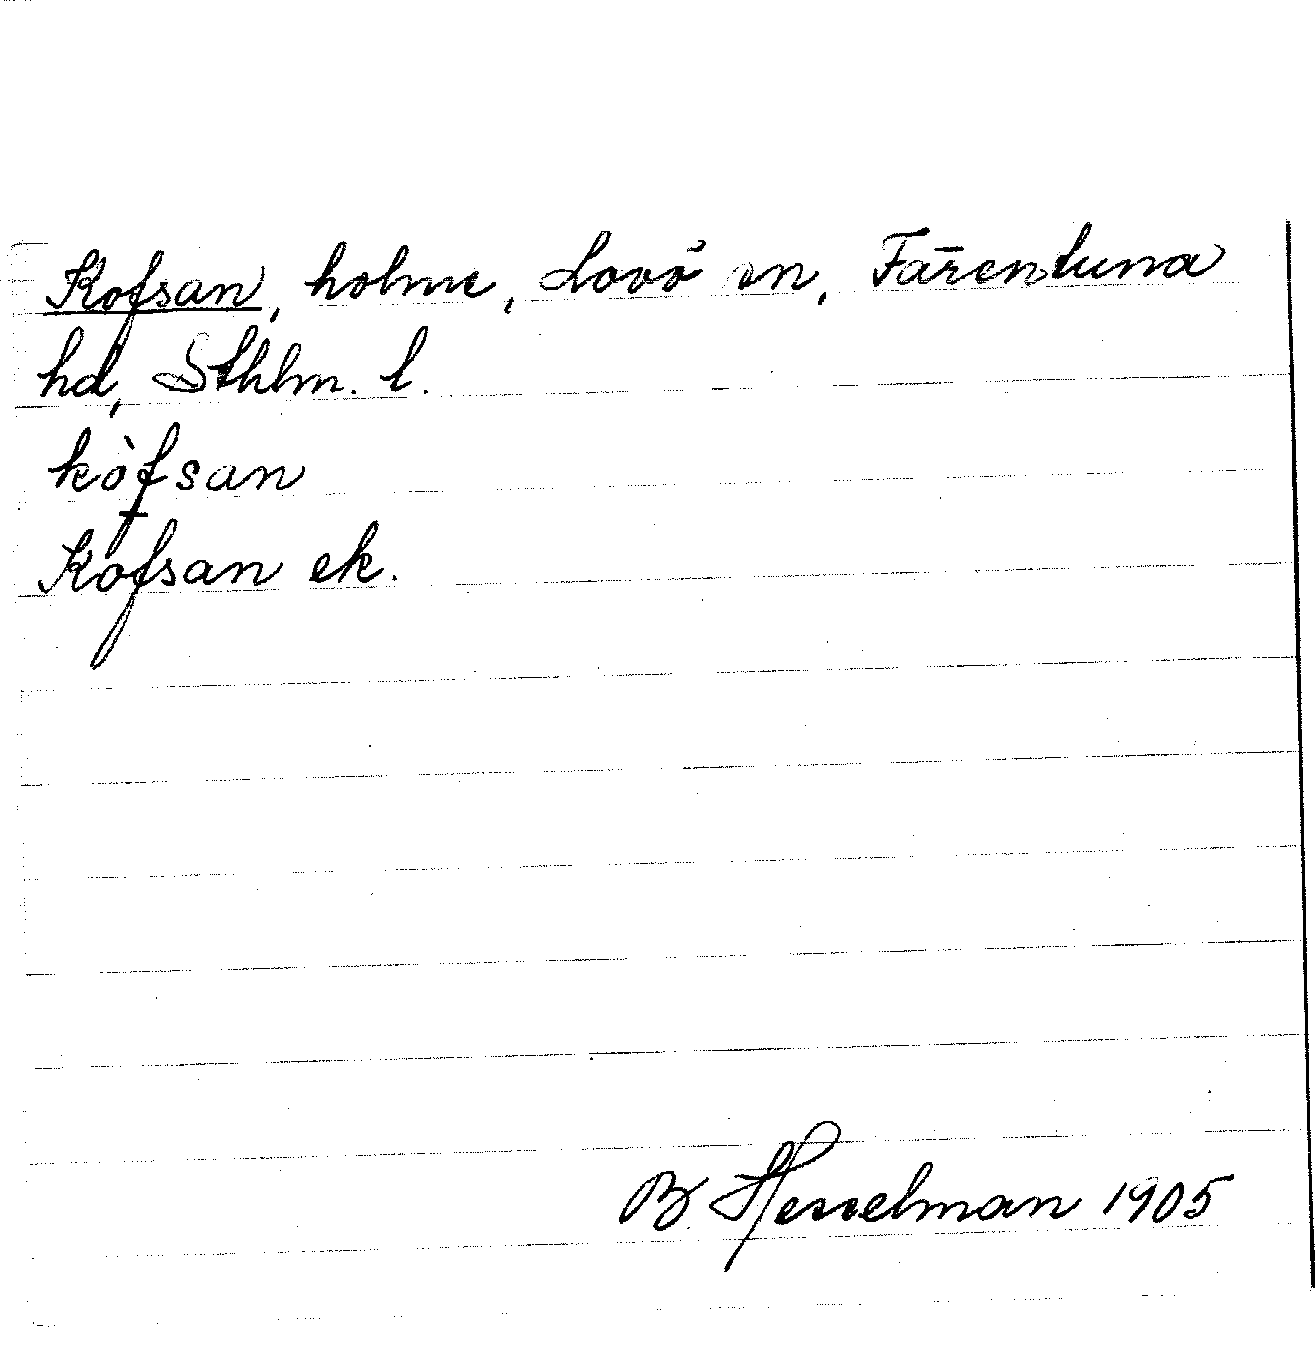 Kofsan, holme, Lovö sn, Färentuna
hd, Sthlm. l.
kòfsan
Kofsan ek.
B Hesselman 1905